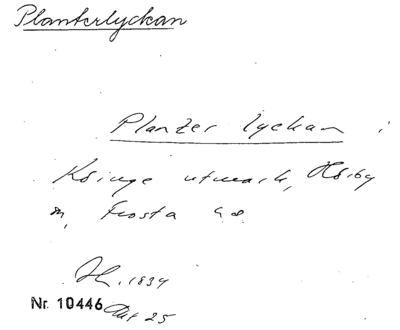 Planterlyckan
Planter lyckan i
Ksinge utmark, Hörby
sn, Frosta hd.
1834
Nr. 10446 Akt 25